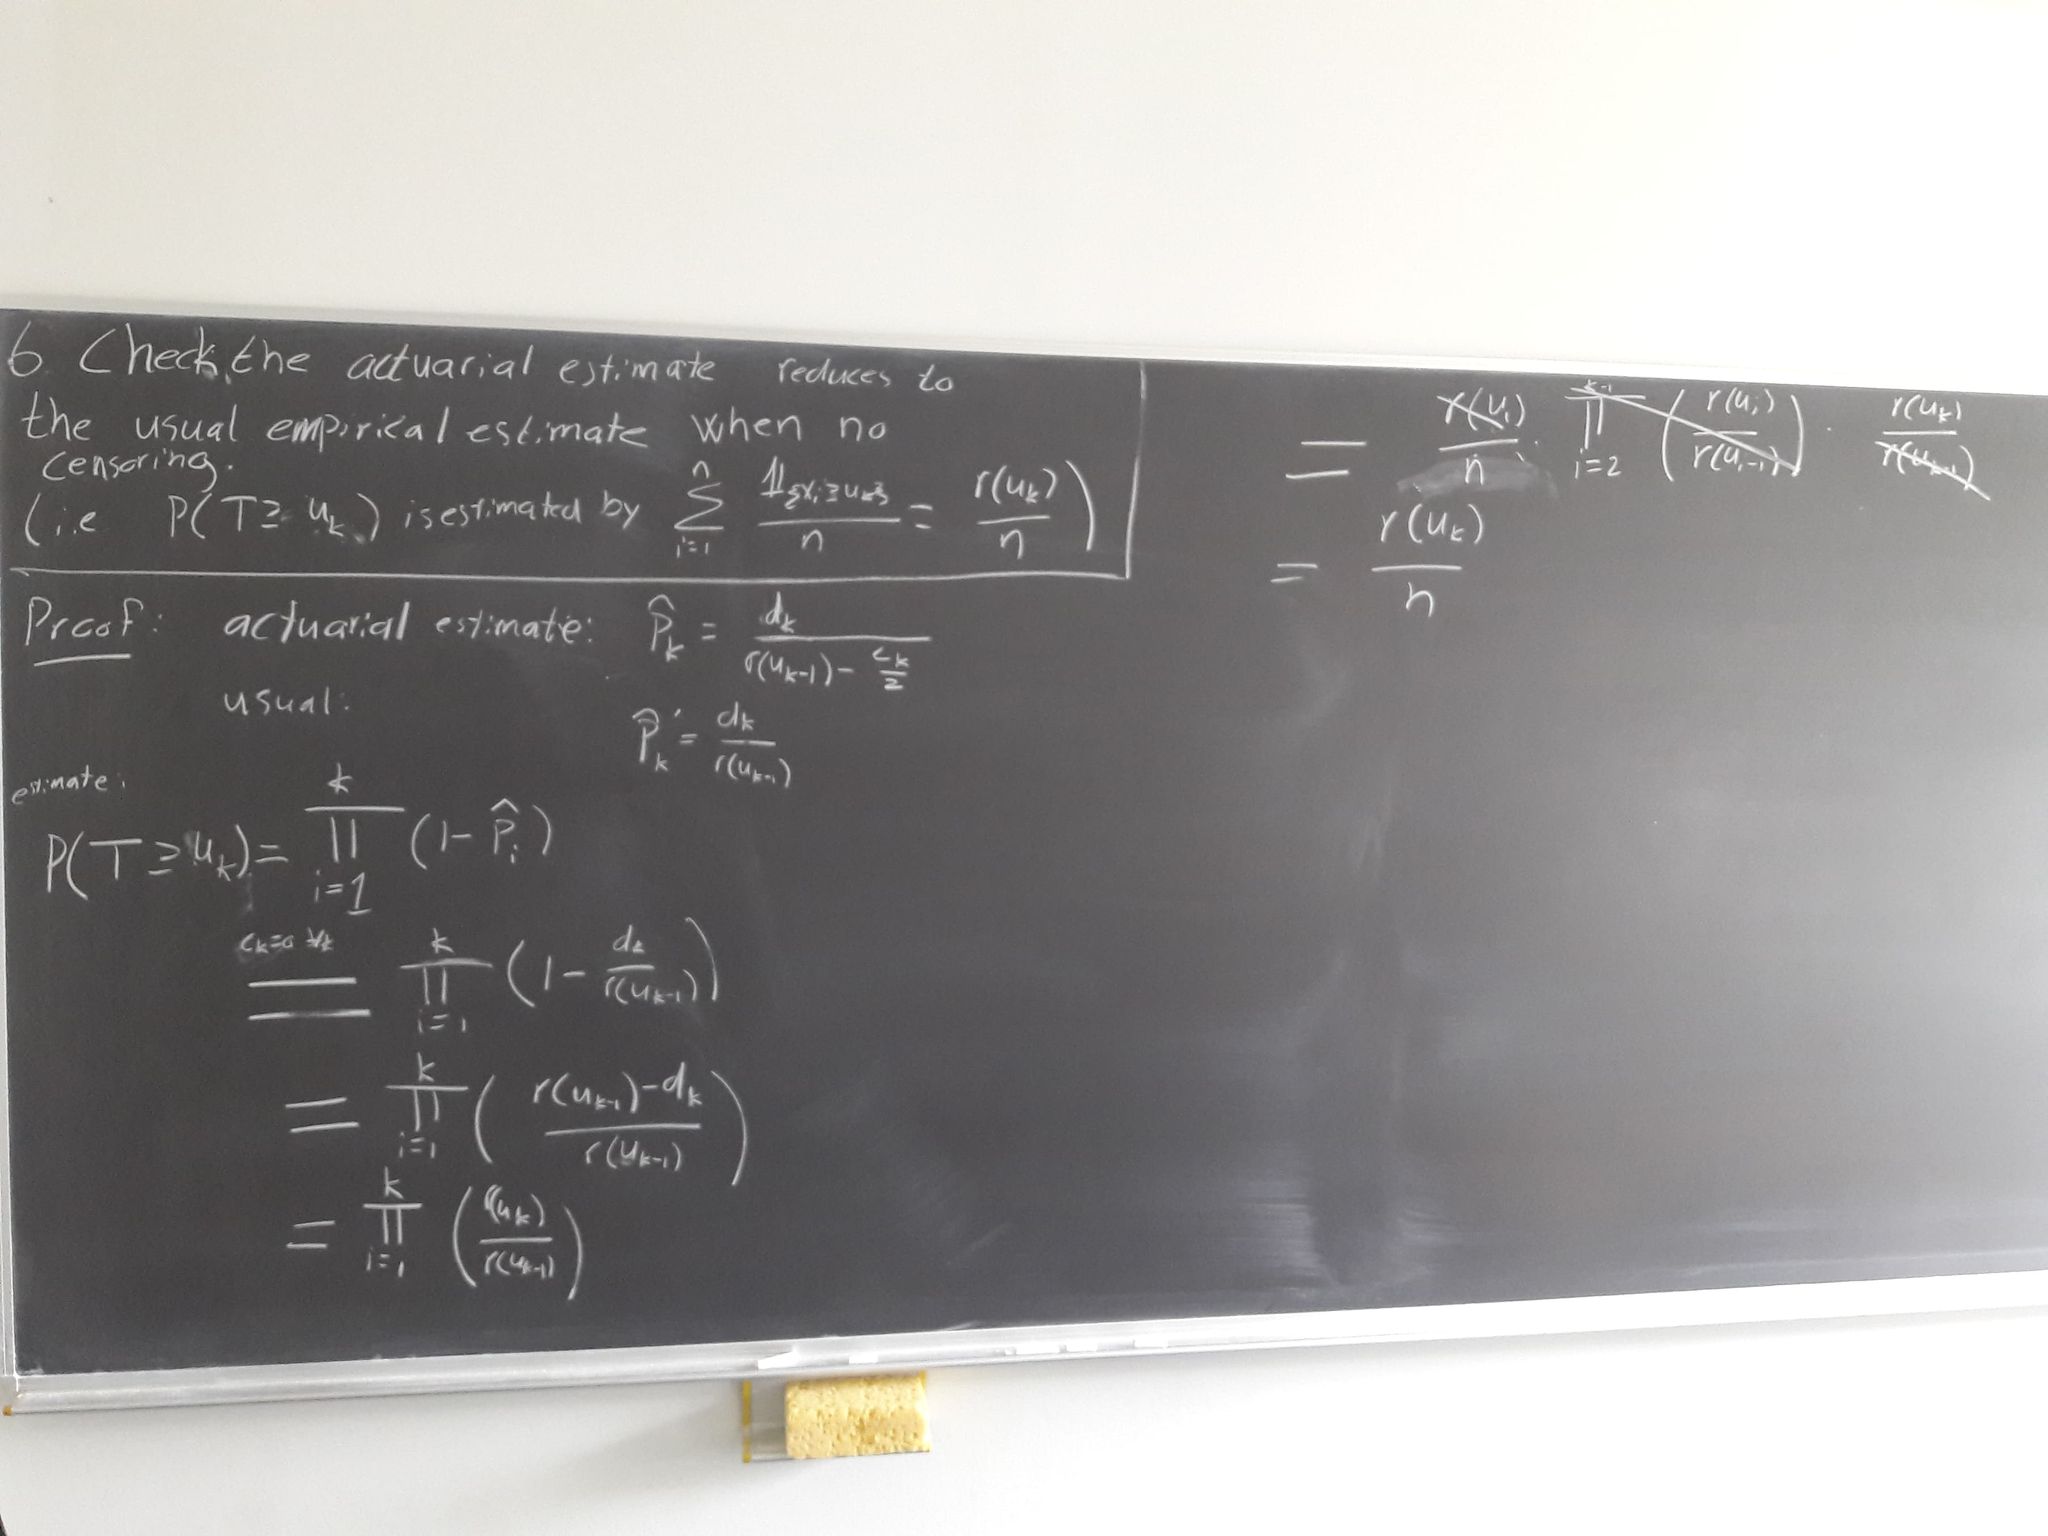 6. Check, the actuarial estimate reduces to
the usual empirical estimate when no
censoring.
(i.e P(T ≥ u_k) is estimated by \sum_{i=1}^{n} \frac{𝟙_{\{x_i ≥ u_k\}}}{n} = \frac{r(u_k)}{n})
Proof: actuarial estimate: \hat{P}_k = \frac{d_k}{r(u_{k-1}) - \frac{c_k}{2}}
usual: \hat{P}_k' = \frac{d_k}{r(u_{k-1})}
estimate:
P(T ≥ u_k) = \prod_{i=1}^{k} (1 - \hat{P}_i)
c_k=0 ∀k
= \prod_{i=1}^{k} (1 - \frac{d_k}{r(u_{k-1})})
= \prod_{i=1}^{k} (\frac{r(u_{k-1}) - d_k}{r(u_{k-1})})
= \prod_{i=1}^{k} (\frac{r(u_k)}{r(u_{k-1})})
= \frac{r(u_1)}{n} · \prod_{i=2}^{k-1} (\frac{r(u_i)}{r(u_{i-1})}) · \frac{r(u_k)}{r(u_{k-1})}
= \frac{r(u_k)}{n}